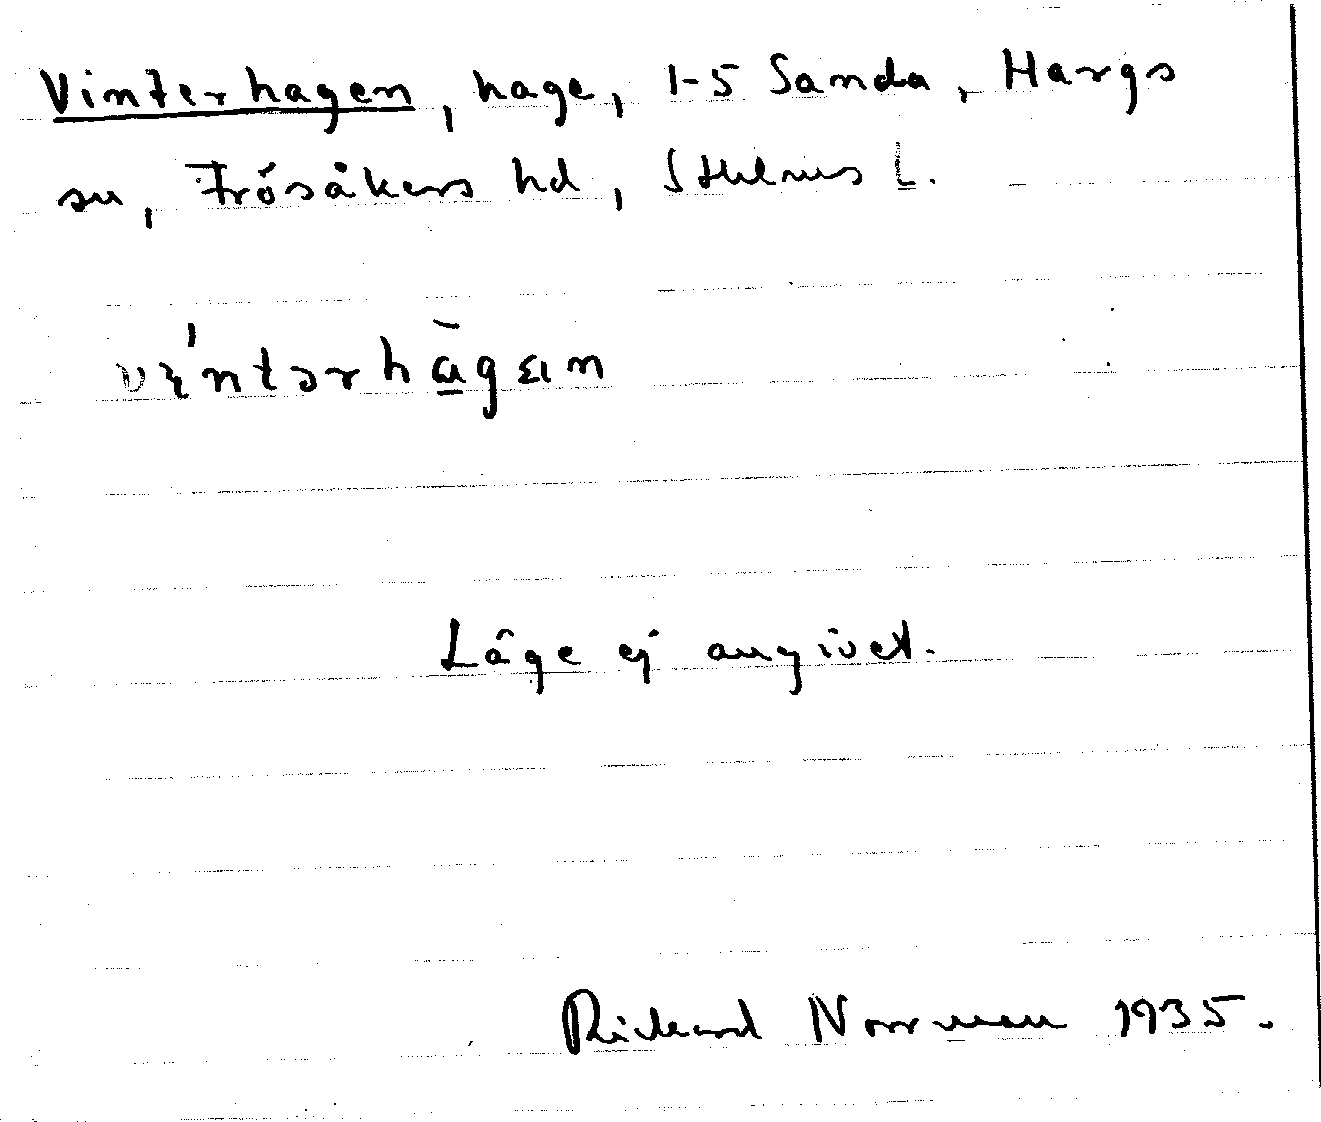 Vinterhagen, hage, 1-5 Sanda, Hargs
sn, Frösåkers hd, Sthlms L.
víntərhāgan
Läge ej angivet.
Richard Norrman 1935.